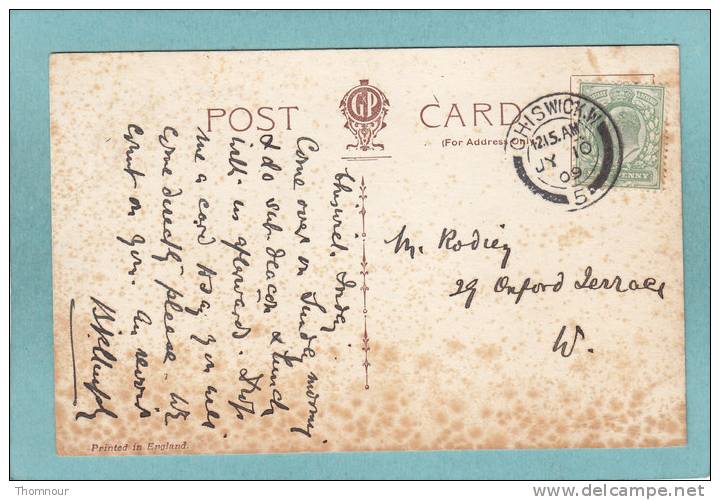 POST CARD
GP
(For Address Only)
CHISWICK.W
12.15.AM
JY 10
09
5
PENNY
Chiswick. Friday
Come over on Sunday morning
& do sub deacon & lunch
with us afterwards. Drop
me a card to say you will
come directly please. We
count on you. Au revoir
Mr. Rodiey
29 Oxford Terrace
W.
Printed in England.
Thomnour
delcampe.net